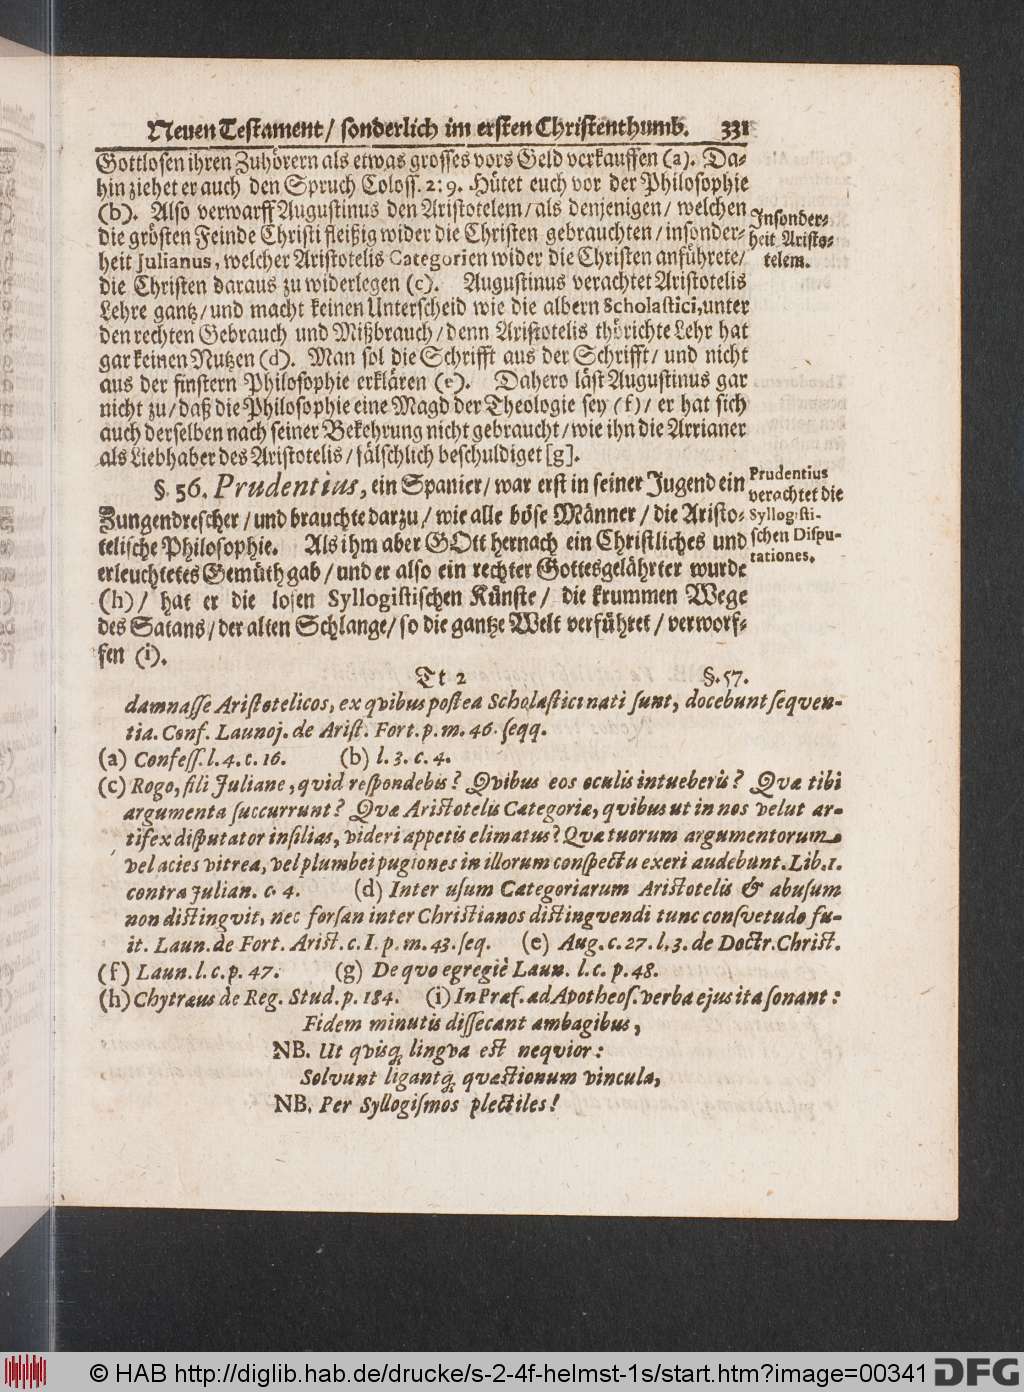 Neuen Testament/ sonderlich im ersten Christenthumb. 331
Gottlosen ihren Zuhörern als etwas grosses vors Geld verkauffen (a). Da-
hin ziehet er auch den Spruch Coloss. 2: 9. Hütet euch vor der Philosophie
(b). Also verwarff Augustinus den Aristotelem/ als denjenigen/ welchen
die grösten Feinde Christi fleißig wider die Christen gebrauchten/ insonder-
heit Julianus, welcher Aristotelis Categorien wider die Christen anführete/
die Christen daraus zu widerlegen (c). Augustinus verachtet Aristotelis
Lehre gantz/ und macht keinen Unterscheid wie die albern Scholastici, unter
den rechten Gebrauch und Mißbrauch/ denn Aristotelis thörichte Lehr hat
gar keinen Nutzen (d). Man sol die Schrifft aus der Schrifft/ und nicht
aus der finstern Philosophie erklären (e). Dahero läst Augustinus gar
nicht zu/ daß die Philosophie eine Magd der Theologie sey (f)/ er hat sich
auch derselben nach seiner Bekehrung nicht gebraucht/ wie ihn die Arrianer
als Liebhaber des Aristotelis/ fälschlich beschuldiget [g].
Insonder-
heit Aristo-
telem.
§. 56. Prudentius, ein Spanier/ war erst in seiner Jugend ein
Zungendrescher/ und brauchte darzu/ wie alle böse Männer/ die Aristo-
telische Philosophie. Als ihm aber GOtt hernach ein Christliches und
erleuchtetes Gemüth gab/ und er also ein rechter Gottesgelährter wurde
(h)/ hat er die losen Syllogistischen Künste/ die krummen Wege
des Satans/ der alten Schlange/ so die gantze Welt verführet/ verworf-
fen (i).
Prudentius
verachtet die
Syllogisti-
schen Dispu-
tationes.
Tt 2 §. 57.
damnasse Aristotelicos, ex qvibus postea Scholastici nati sunt, docebunt seqven-
tia. Conf. Launoj. de Arist. Fort. p. m. 46. seqq.
(a) Confess. l. 4. c. 16. (b) l. 3. c. 4.
(c) Rogo, fili Juliane, qvid respondebis? Qvibus eos oculis intueberis? Qvæ tibi
argumenta succurrunt? Qvæ Aristotelis Categoriæ, qvibus ut in nos velut ar-
tifex disputator insilias, videri appetis elimatus? Qvæ tuorum argumentorum
vel acies vitrea, vel plumbei pugiones in illorum conspectu exeri audebunt. Lib. 1.
contra Julian. c. 4. (d) Inter usum Categoriarum Aristotelis & abusum
non distingvit, nec forsan inter Christianos distingvendi tunc consvetudo fu-
it. Laun. de Fort. Arist. c. I. p. m. 43. seq. (e) Aug. c. 27. l. 3. de Doctr. Christ.
(f) Laun. l. c. p. 47. (g) De qvo egregiè Laun. l. c. p. 48.
(h) Chytræus de Reg. Stud. p. 184. (i) In Præf. ad Apotheos. verba ejus ita sonant:
Fidem minutis dissecant ambagibus,
NB. Ut qvisq; lingva est neqvior:
Solvunt ligantq; qvæstionum vincula,
NB. Per Syllogismos plectiles!
© HAB http://diglib.hab.de/drucke/s-2-4f-helmst-1s/start.htm?image=00341
DFG